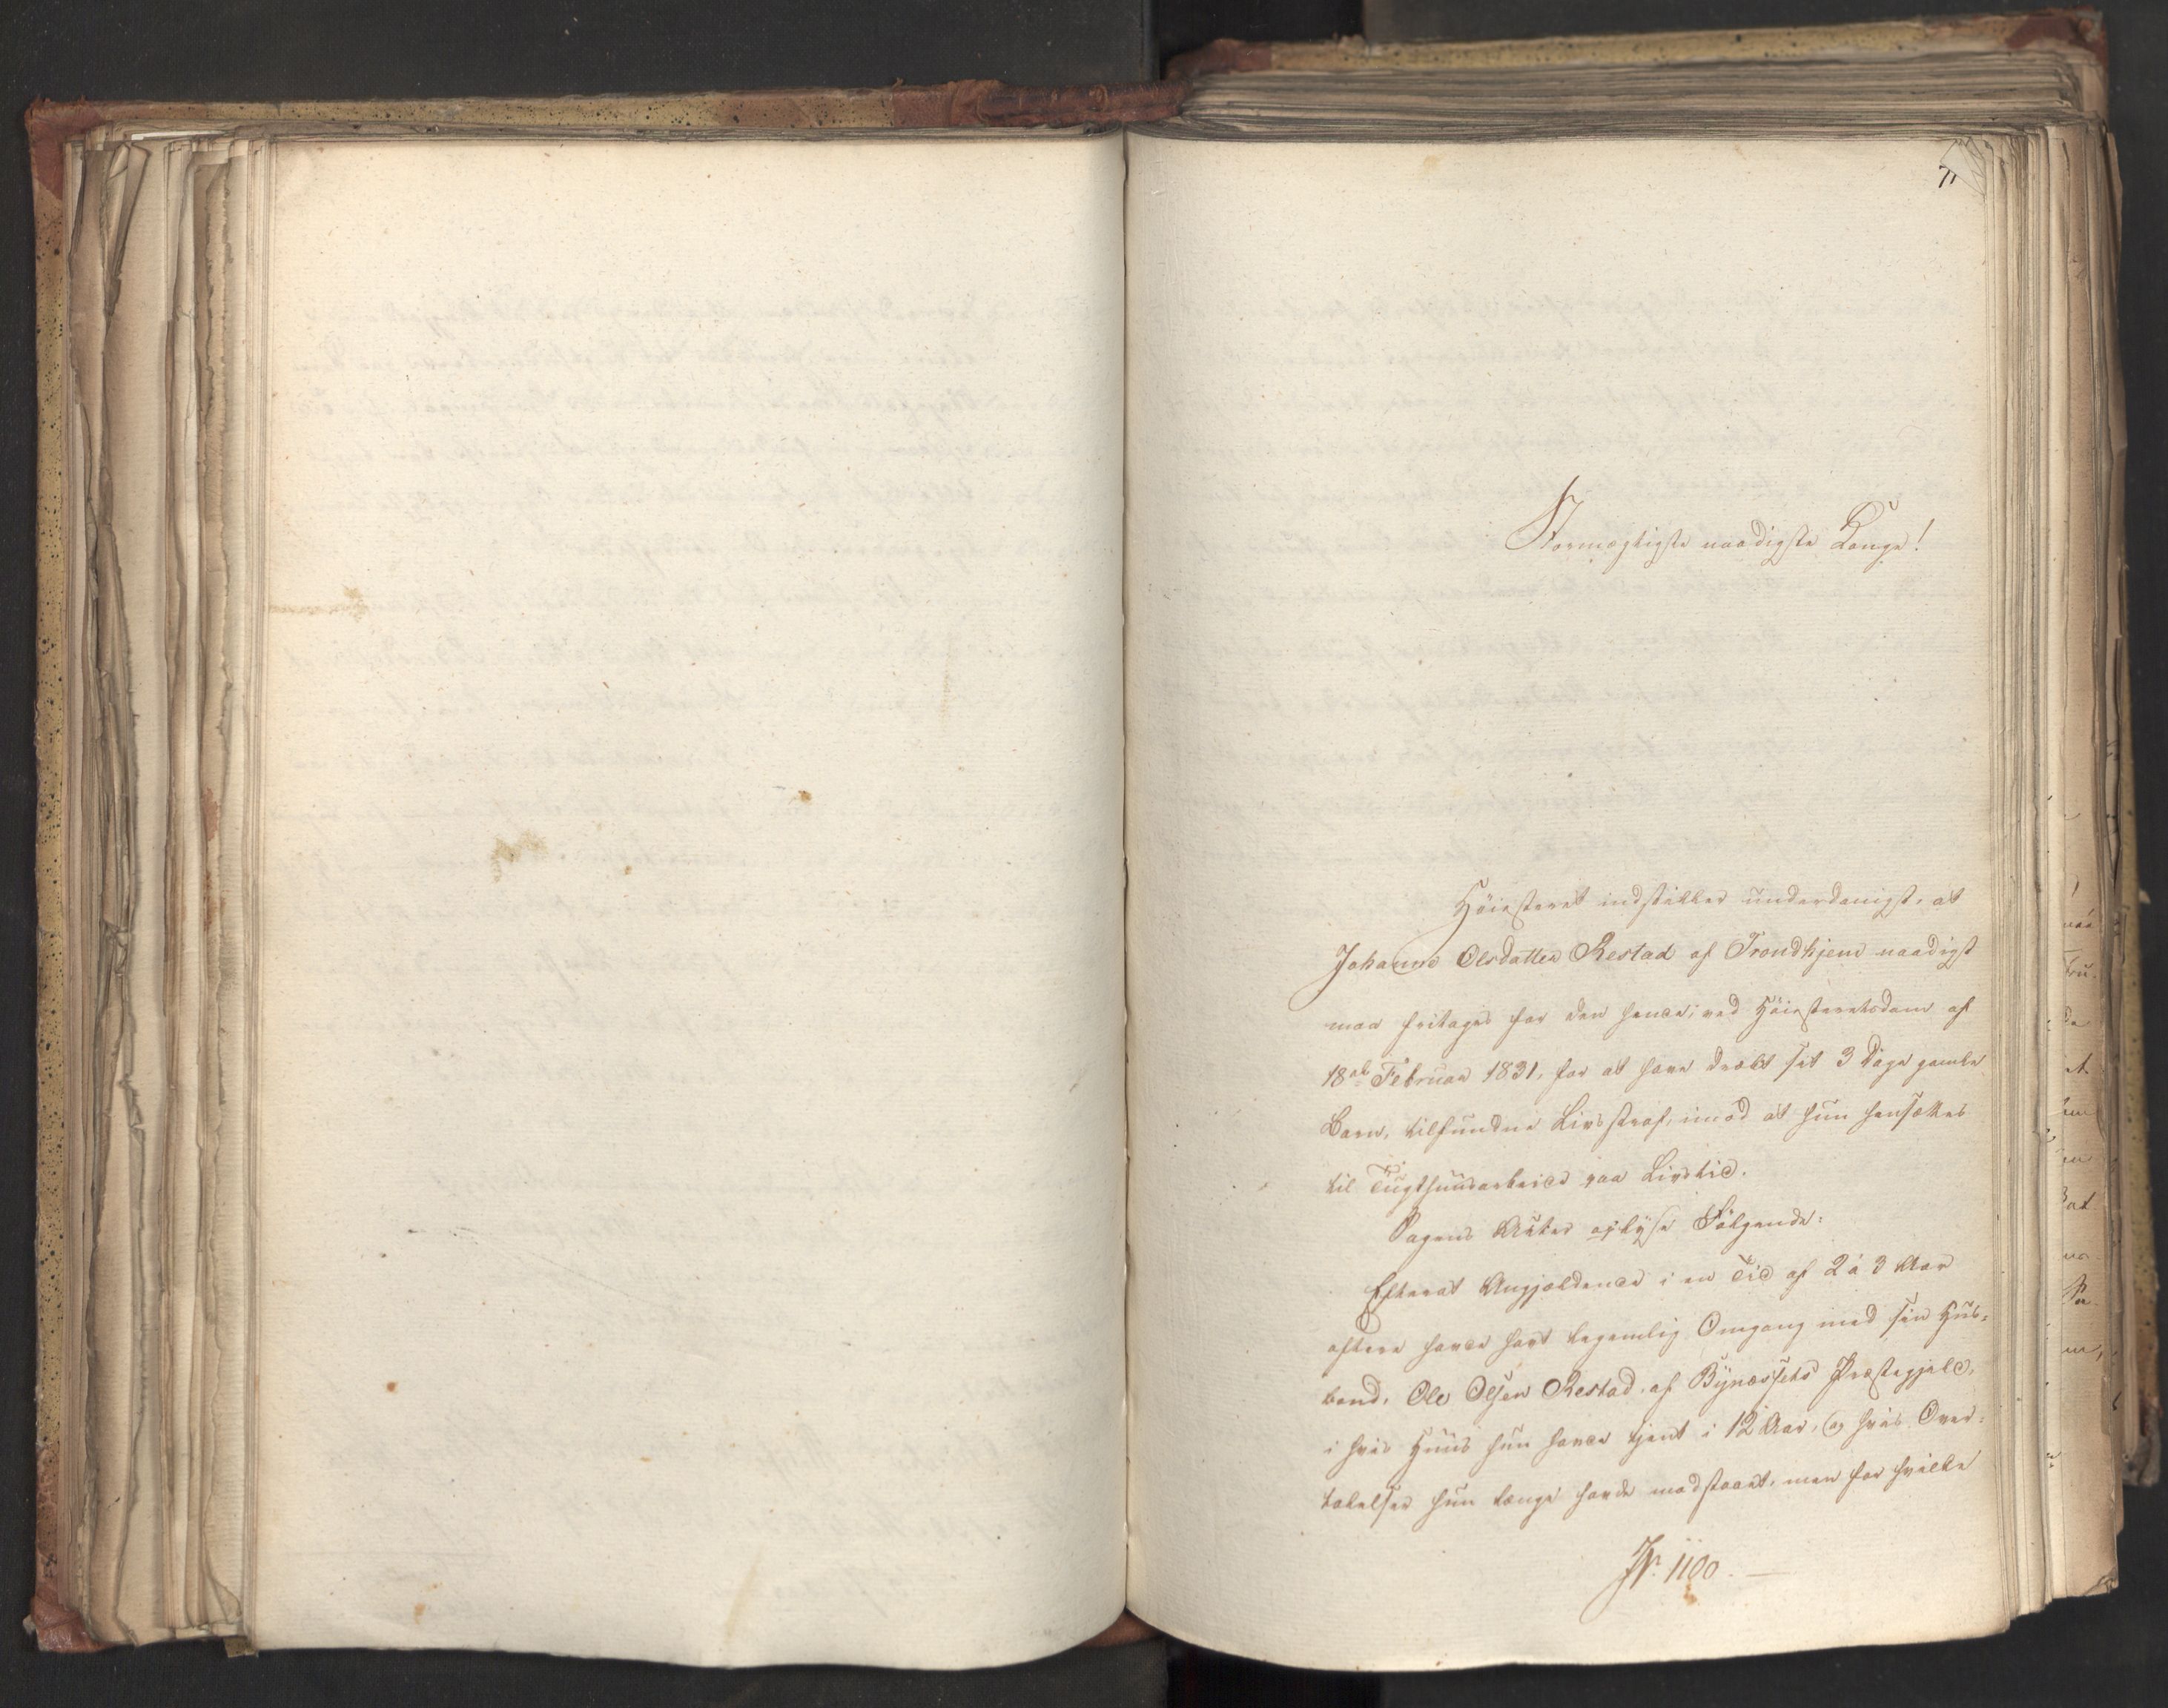 71
Stormægtigste naadigste Konge!
Höiesteret indstiller underdanigst, at
Johanne Olsdatter Restad af Trondhjem naadigst
maa fritages for den hende, ved Höiesteretsdom af
18de Februar 1831, for at have dræbt sit 3 Dage gamle
Barn, tilfundne Livsstraf, imod at hun hensættes
til Tugthuusarbeide paa Livstid.
Sagens Akter oplyse Fölgende:
Efterat Angjældende i en Tid af 2 à 3 Aar
oftere havde havt legemlig Omgang med sin Huus-
bond, Ole Olsen Restad, af Bynæssets Præstegjeld,
i hvis Huus hun havde tjent i 12 Aar, og hvis Over-
talelser hun længe havde modstaaet, men for hvilke
No. 1100.